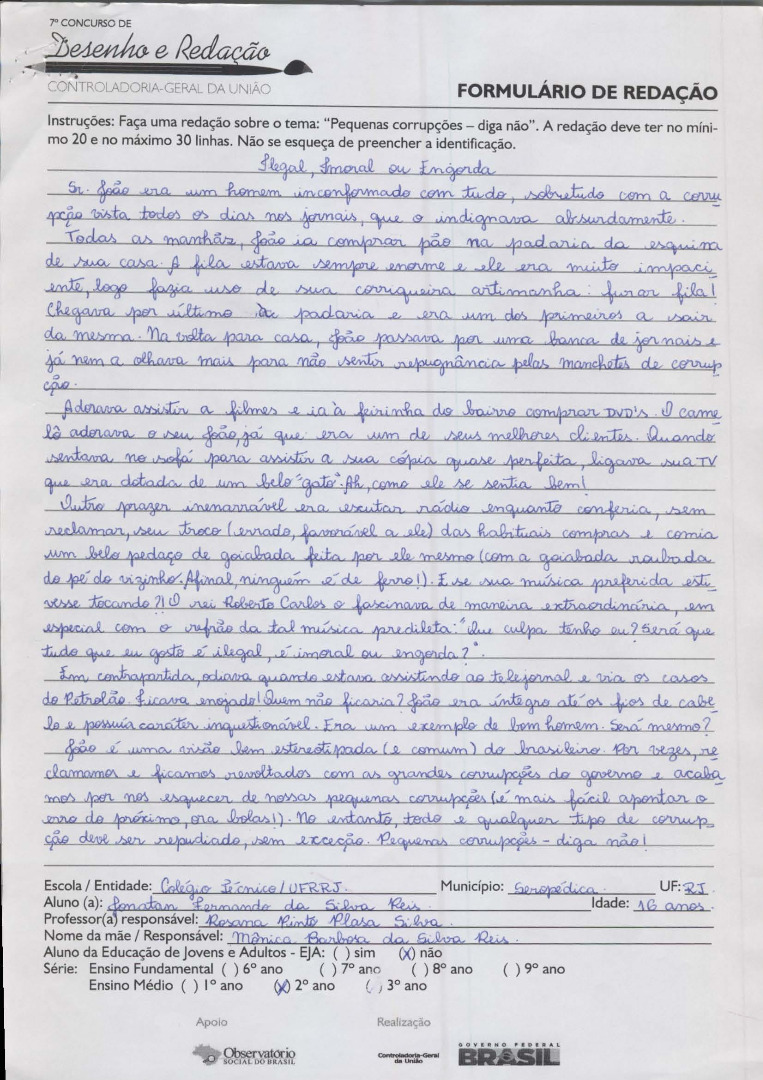 7º CONCURSO DE
Desenho e Redação
CONTROLADORIA-GERAL DA UNIÃO
FORMULÁRIO DE REDAÇÃO
Instruções: Faça uma redação sobre o tema: “Pequenas corrupções – diga não”. A redação deve ter no míni-
mo 20 e no máximo 30 linhas. Não se esqueça de preencher a identificação.
Ilegal, Imoral ou Engorda
Sr. João era um homem inconformado com tudo, sobretudo com a corru
pção vista todos os dias nos jornais, que o indignava absurdamente.
Todas as manhãs, João ia comprar pão na padaria da esquina
de sua casa. A fila estava sempre enorme e ele era muito impaci-
ente, logo fazia uso de sua corriqueira artimanha: furar fila!
Chegava por último à padaria e era um dos primeiros a sair
da mesma. Na volta para casa, João passava por uma banca de jornais e
já nem a olhava mais para não sentir repugnância pelas manchetes de corrup
ção.
Adorava assistir a filmes e ia à feirinha do bairro comprar DVD's. O came
lô adorava o seu João, já que era um de seus melhores clientes. Quando
sentava no sofá para assistir a sua cópia quase perfeita, ligava sua TV
que era dotada de um belo "gato". Ah, como ele se sentia bem!
Outro prazer inenarrável era escutar rádio enquanto conferia, sem
reclamar, seu troco (errado, favorável a ele) das habituais compras e comia
um belo pedaço de goiabada feita por ele mesmo (com a goiabada roubada
do pé do vizinho. Afinal, ninguém é de ferro!). E se sua música preferida esti
vesse tocando?! O rei Roberto Carlos o fascinava de maneira extraordinária, em
especial com o refrão da tal música predileta: "Que culpa tenho eu? Será que
tudo que eu gosto é ilegal, é imoral ou engorda?".
Em contrapartida, odiava quando estava assistindo ao telejornal e via os casos
do Petrolão. Ficava enojado! Quem não ficaria? João era íntegro até os fios de cabe
lo e possuía caráter inquestionável. Era um exemplo de bom homem. Será mesmo?
João é uma visão bem estereotipada (e comum) do brasileiro. Por vezes, re
clamamos e ficamos revoltados com as grandes corrupções do governo e acaba
mos por nos esquecer de nossas pequenas corrupções (é mais fácil apontar o
erro do próximo, ora bolas!). No entanto, todo e qualquer tipo de corrup-
ção deve ser repudiado, sem exceção. Pequenas corrupções - diga não!
Escola / Entidade: Colégio Técnico/UFRRJ. Município: Seropédica. UF: RJ
Aluno (a): Jonatan Fernando da Silva Reis. Idade: 16 anos.
Professor(a) responsável: Rosana Pinto Plasa Silva.
Nome da mãe / Responsável: Mônica Barbosa da Silva Reis.
Aluno da Educação de Jovens e Adultos - EJA: ( ) sim (X) não
Série: Ensino Fundamental ( ) 6º ano ( ) 7º ano ( ) 8º ano ( ) 9º ano
Ensino Médio ( ) 1º ano (X) 2º ano ( ) 3º ano
Apoio Realização
Observatório
SOCIAL DO BRASIL
Controladoria-Geral
da União
GOVERNO FEDERAL
BRASIL